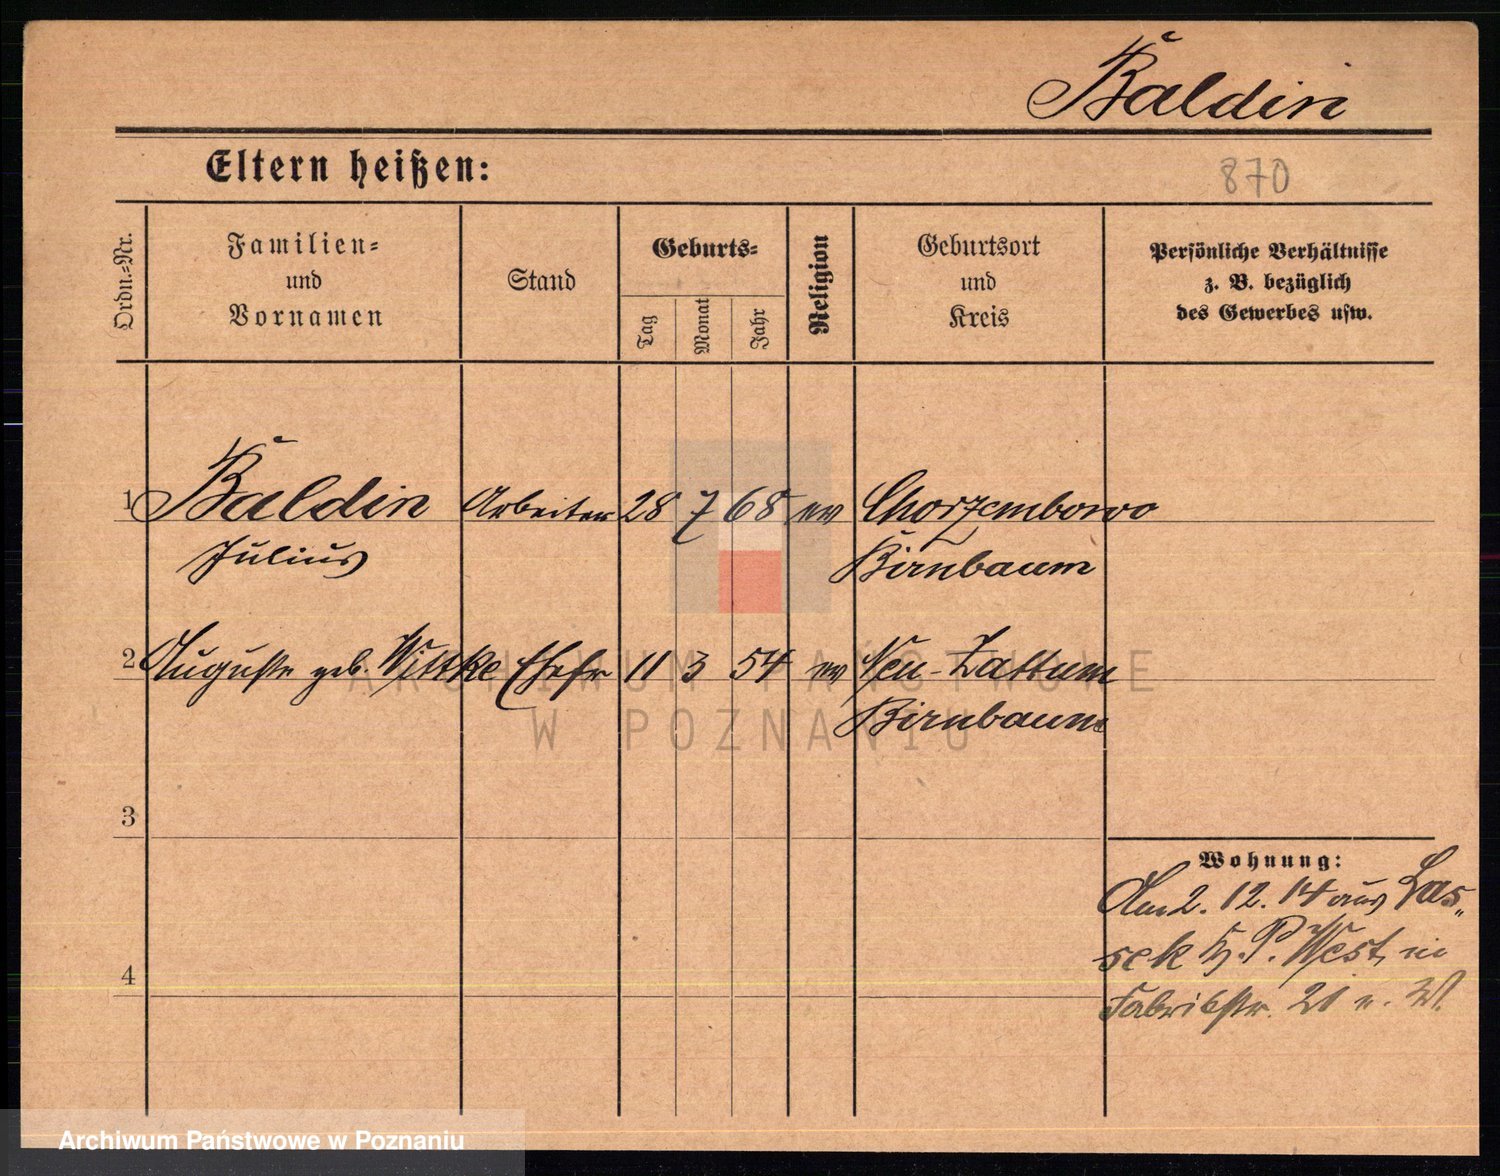 Baldin
Eltern heißen:
870
Ordn.=Nr.
Familien=
und
Vornamen
Stand
Geburts=
Tag
Monat
Jahr
Religion
Geburtsort
und
Kreis
Persönliche Verhältnisse
z. B. bezüglich
des Gewerbes usw.
1 Baldin Arbeiter 28 7 68 ev Chorzembowo
Julius Birnbaum
2 Auguste geb. Wittke Ehefr 11 3 54 ev Neu-Zattum
Birnbaum
3
4
Wohnung:
Am 2. 12. 14 aus Las„
sek Kr. P. West, in
Fabrikstr. 21 b. W.
ARCHIWUM PAŃSTWOWE
W POZNANIU
Archiwum Państwowe w Poznaniu